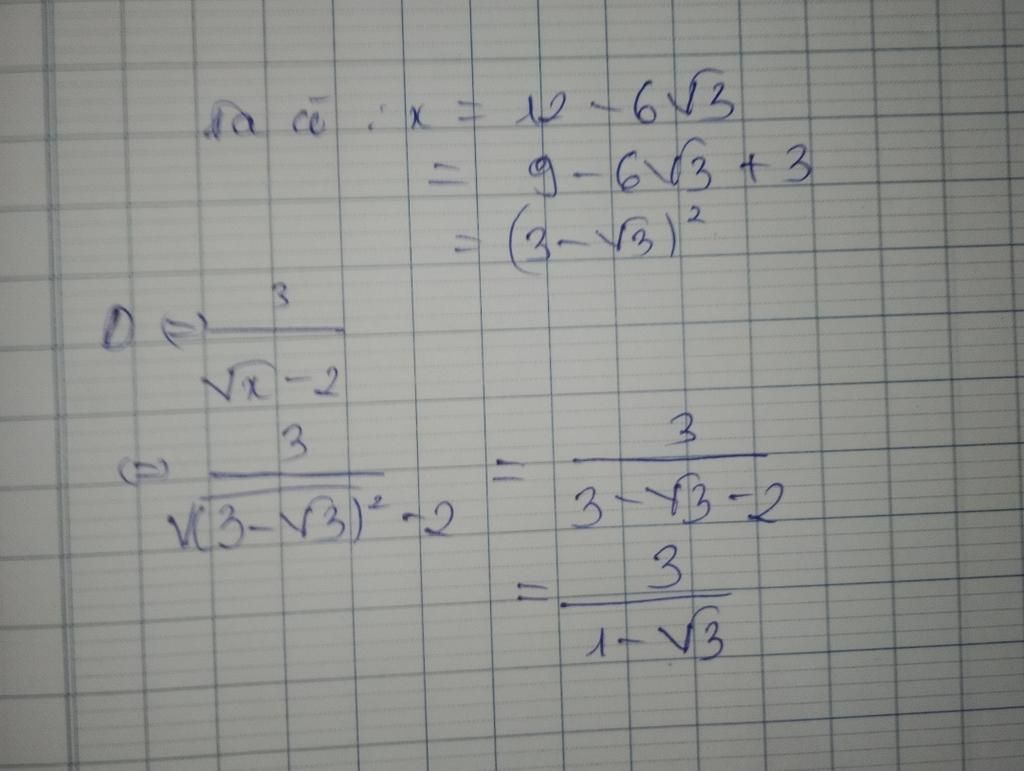 Ta có : x = 12 - 6√3
= 9 - 6√3 + 3
= (3 - √3)²
D ⇔ 3 / (√x - 2)
⇔ 3 / (√(3 - √3)² - 2) = 3 / (3 - √3 - 2)
= 3 / (1 - √3)